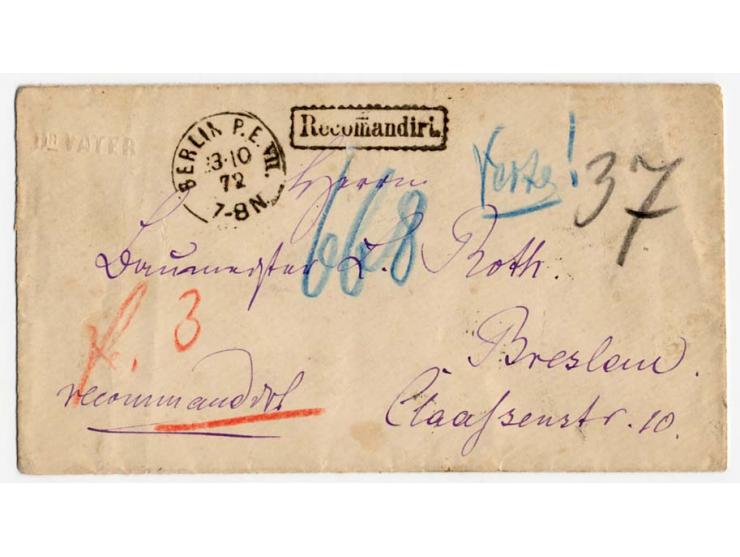 DR VATER
BERLIN P.E. VII.
23·10
72
7-8 N.
Recomandirt.
Herrn
668
37
Baumeister L. Roth.
fr. 3
Breslau.
recommandirt
Claaßenstr. 10.